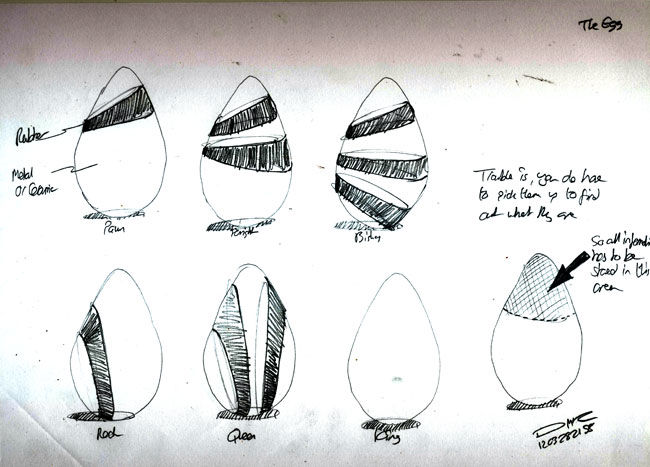 The Eggs
Rubber
Metal
Or Ceramic
Pawn
Knight
Bishop
Trouble is, you do have
to pick them up to find
out what they are
So all informati
has to be
stored in this
area
Rook
Queen
King